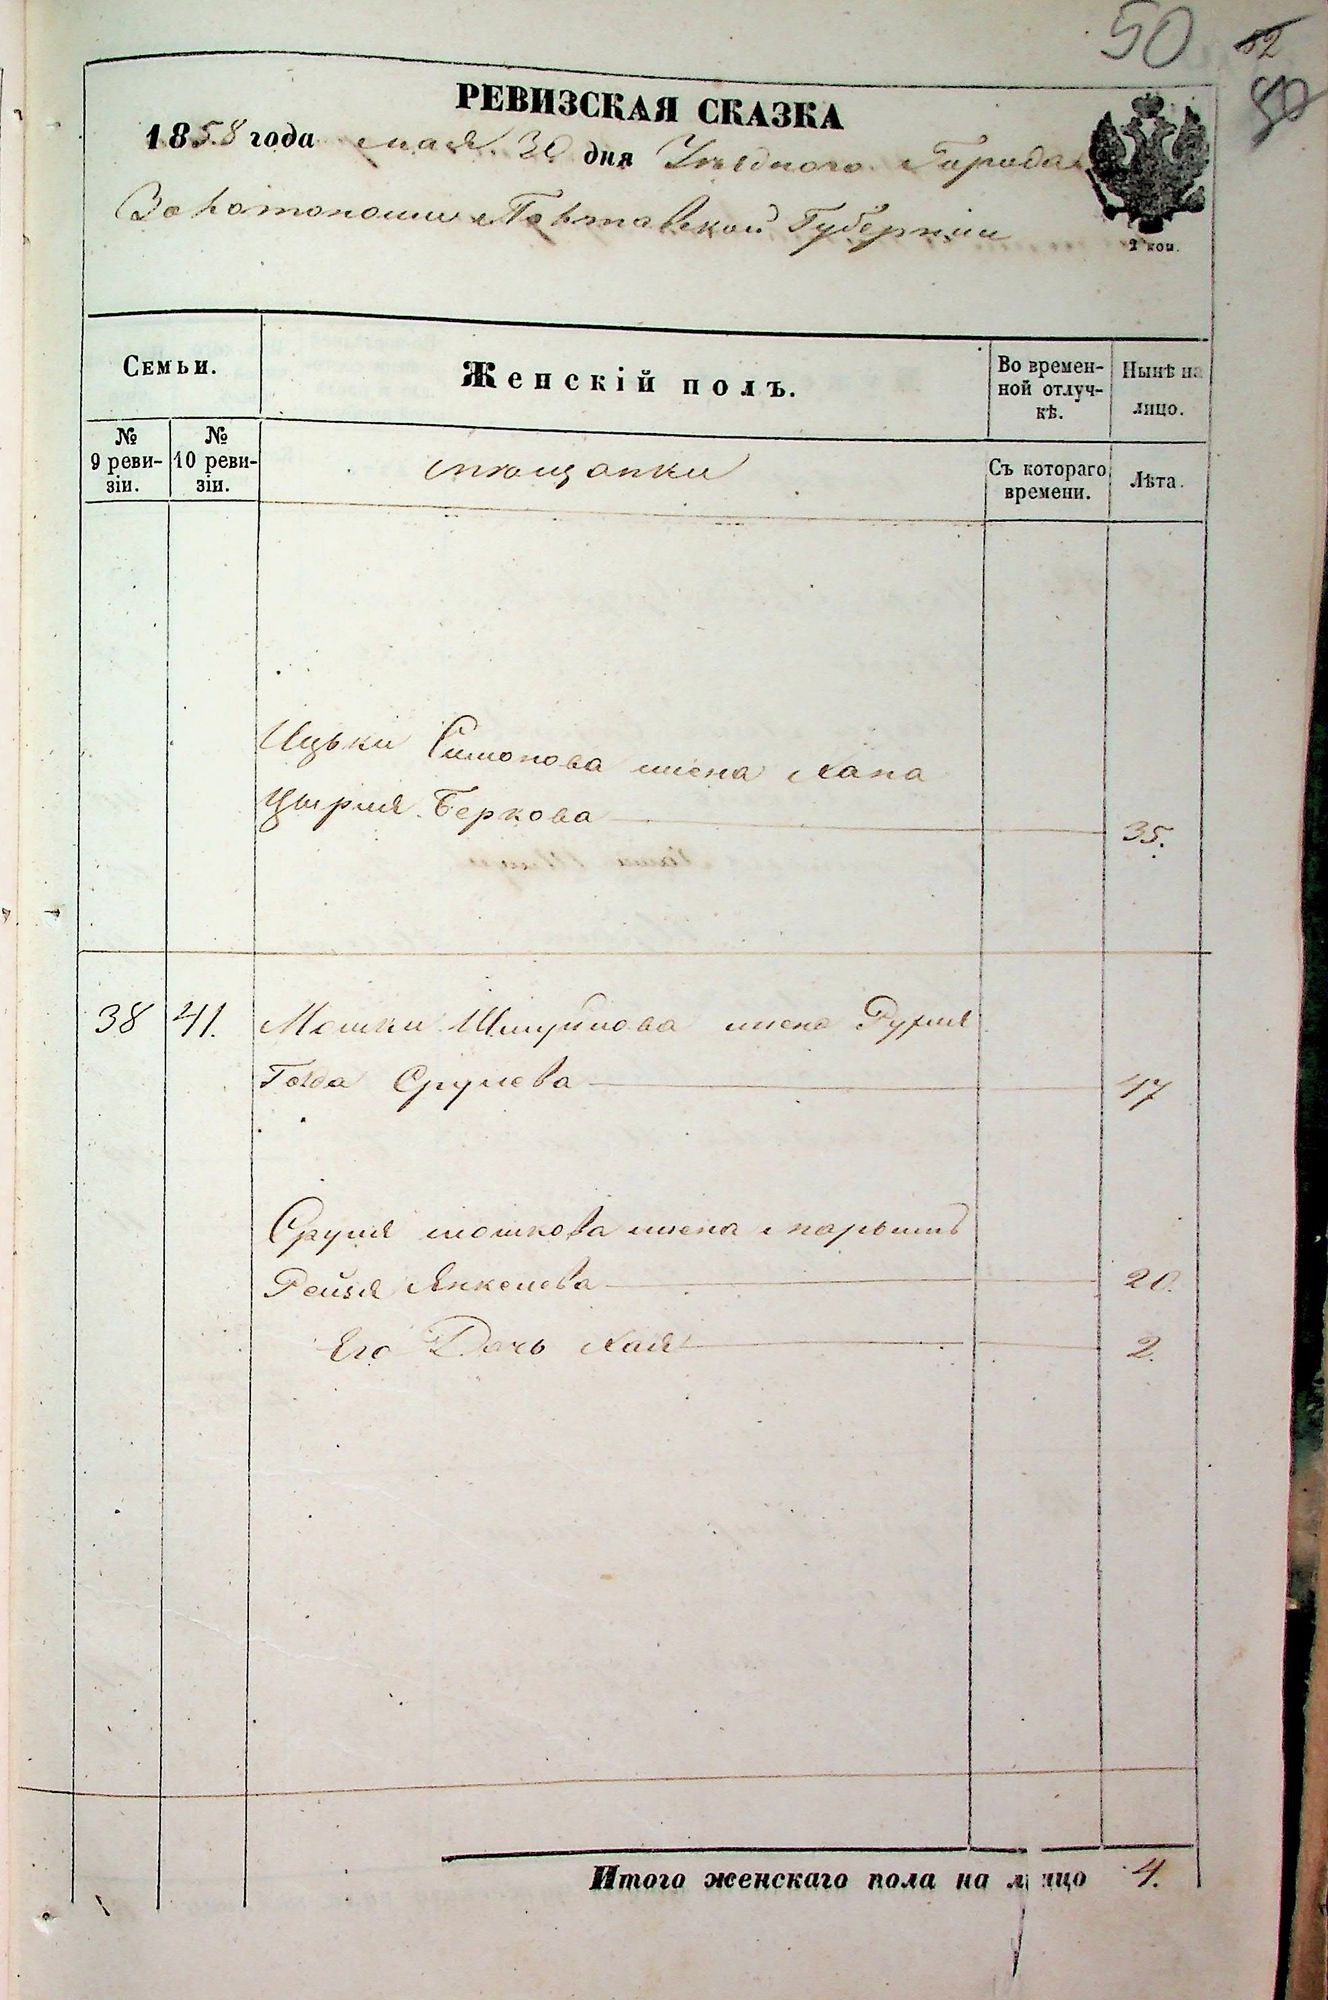 50 52
50
РЕВИЗСКАЯ СКАЗКА
1858 года мая 30 дня Уѣзднаго Города
Золотоноши Полтавской Губерніи
2 коп.
Семьи.
Женскій полъ.
Во времен-
ной отлуч-
кѣ.
Нынѣ на
лицо.
№
9 реви-
зіи.
№
10 реви-
зіи.
мѣщанки
Съ котораго
времени.
Лѣта.
Ицьки Симонова жена Хана
Цырля Беркова 35.
38 41. Мошки Шмуйлова жена
Голда Срулева 47
Сруля мошкова жена
Рейзя Янкелева 20.
Его Дочь Хая 2.
Итого женскаго пола на лицо 4.